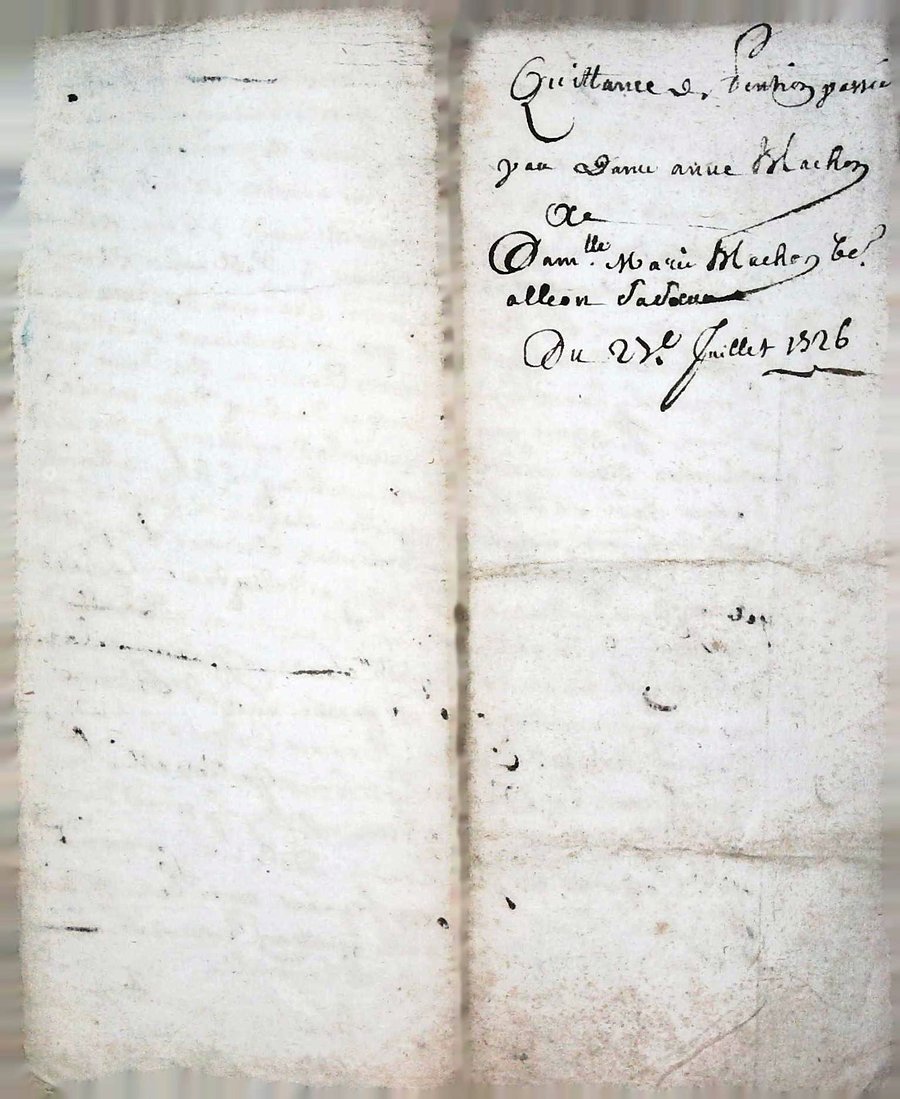 Quittance de Pention passée
par Dame anne Machon
De
Dam.lle Marie Machon
alleon
Du 27.e Juillet 1526